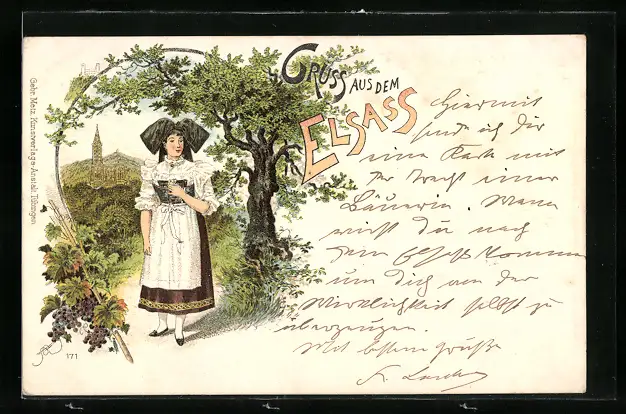 GRUSS AUS DEM
ELSASS
Hiermit
sende ich Dir
eine Karte mit
der Tracht einer
Bäuerin. Wann
wirst Du nach
dem Elsaß kommen
um Dich von der
Wirklichkeit selbst zu
überzeugen.
Mit besten Grüßen
Gebr. Metz, Kunstverlags-Anstalt, Tübingen
171